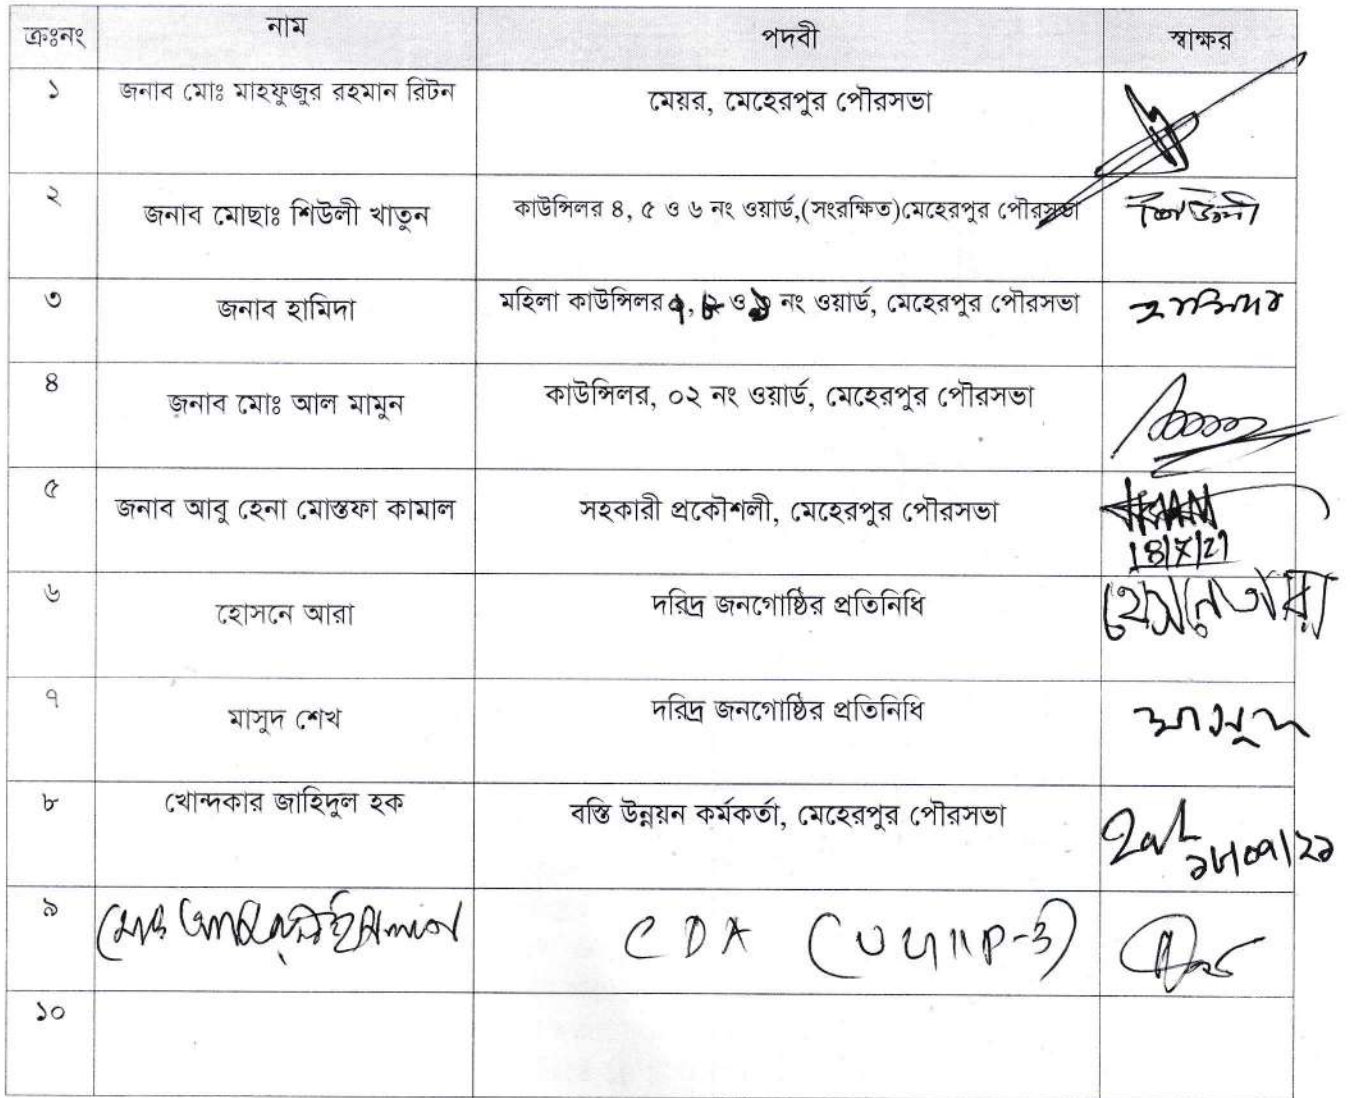 ক্রঃনং নাম পদবী স্বাক্ষর
১ জনাব মোঃ মাহফুজুর রহমান রিটন মেয়র, মেহেরপুর পৌরসভা
২ জনাব মোছাঃ শিউলী খাতুন কাউন্সিলর ৪, ৫ ও ৬ নং ওয়ার্ড,(সংরক্ষিত)মেহেরপুর পৌরসভা শিউলী
৩ জনাব হামিদা মহিলা কাউন্সিলর ৭, ৮ ও ৯ নং ওয়ার্ড, মেহেরপুর পৌরসভা হামিদা
৪ জনাব মোঃ আল মামুন কাউন্সিলর, ০২ নং ওয়ার্ড, মেহেরপুর পৌরসভা
৫ জনাব আবু হেনা মোস্তফা কামাল সহকারী প্রকৌশলী, মেহেরপুর পৌরসভা
18/7/21
৬ হোসনে আরা দরিদ্র জনগোষ্ঠির প্রতিনিধি হোসনেআরা
৭ মাসুদ শেখ দরিদ্র জনগোষ্ঠির প্রতিনিধি মাসুদ
৮ খোন্দকার জাহিদুল হক বস্তি উন্নয়ন কর্মকর্তা, মেহেরপুর পৌরসভা
১৮/০৭/২১
৯ মোঃ CDA (UGIIP-3)
১০